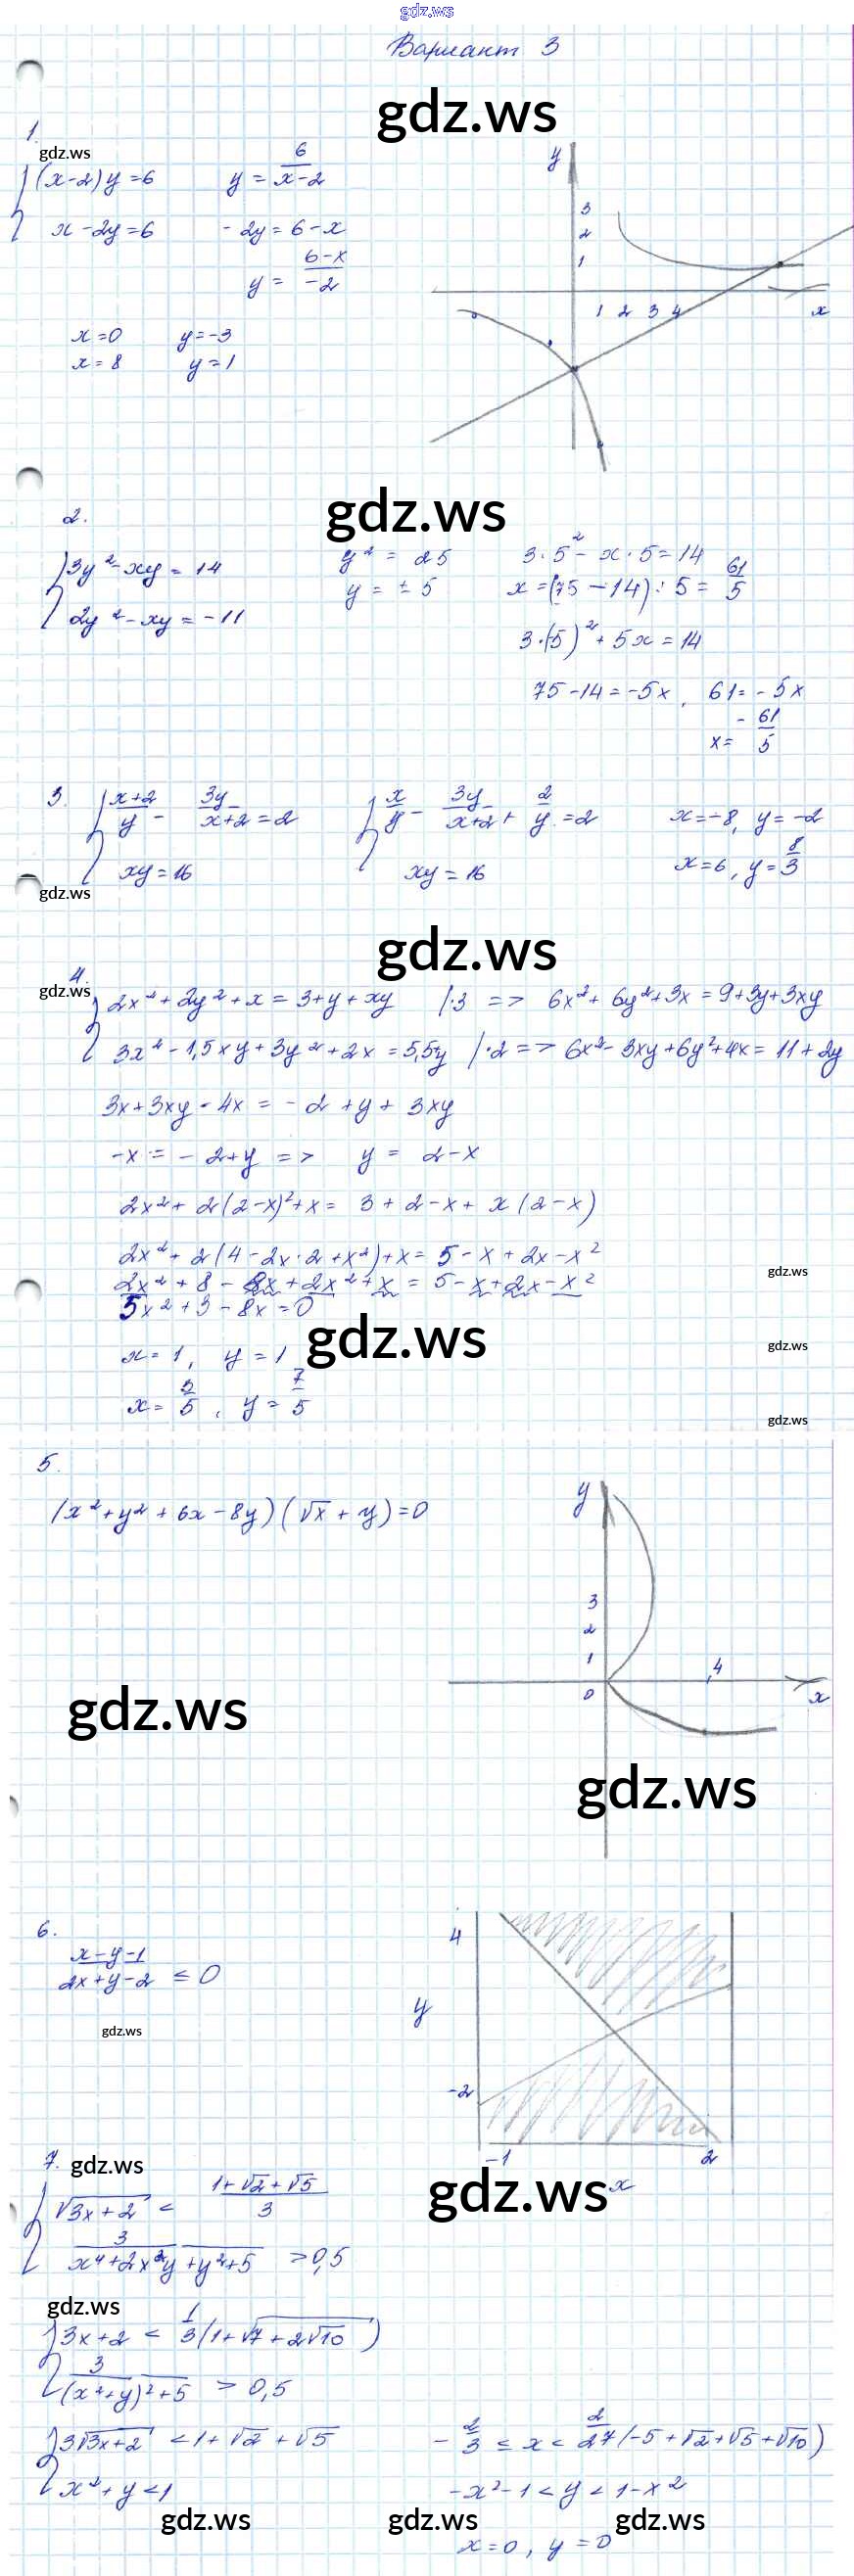 gdz.ws
Вариант 3
gdz.ws
1.
gdz.ws
(x-2)y=6 y = 6/(x-2)
x-2y=6 -2y=6-x
y = (6-x)/-2
x=0 y=-3
x=8 y=1
y
3
2
1
1 2 3 4 x
gdz.ws
2.
3y²-xy=14 y²=25 3·5²-x·5=14
2y²-xy=-11 y=±5 x=(75-14):5=61/5
3·(5)²+5x=14
75-14=-5x, 61=-5x
x=-61/5
3. (x+2)/y - 3y/(x+2)=2 x/y - 3y/(x+2) + 2/y=2 x=-8, y=-2
xy=16 xy=16 x=6, y=8/3
gdz.ws
gdz.ws
4.
gdz.ws
2x²+2y²+x=3+y+xy /·3 => 6x²+6y²+3x=9+3y+3xy
3x²-1,5xy+3y²+2x=5,5y /·2 => 6x²-3xy+6y²+4x=11+2y
3x+3xy-4x=-2+y+3xy
-x=-2+y => y=2-x
2x²+2(2-x)²+x=3+2-x+x(2-x)
2x²+2(4-2x·2+x²)+x=5-x+2x-x²
2x²+8-8x+2x²+x=5-x+2x-x²
5x²+3-8x=0
gdz.ws
gdz.ws
x=1, y=1
gdz.ws
x=3/5, y=7/5
gdz.ws
5.
(x²+y²+6x-8y)(√x+y)=0
y
3
2
1
0
4
x
gdz.ws
gdz.ws
6.
(x-y-1)/(2x+y-2) ≤ 0
gdz.ws
4
y
-2
-1 2
x
7. gdz.ws
gdz.ws
√(3x+2) < (1+√2+√5)/3
3/(x⁴+2x²y+y²+5) >0,5
gdz.ws
3x+2 < 1/3(1+√(7+2√10))
3/((x²+y)²+5) > 0,5
3√(3x+2) <1+√2+√5 -2/3 ≤ x < 2/27(-5+√2+√5+√10)
x²+y<1 -x²-1<y<1-x²
gdz.ws gdz.ws gdz.ws
x=0, y=0